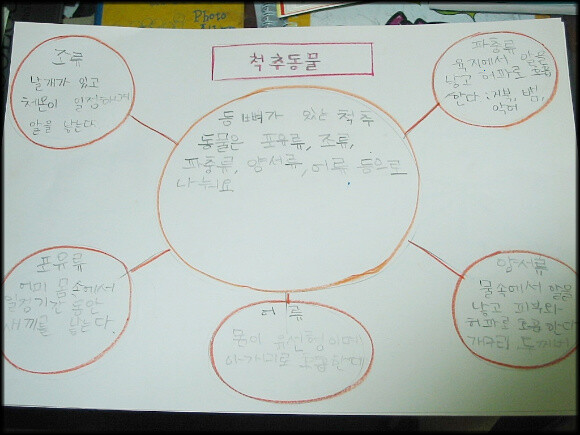 Photo
척추동물
조류
날개가 있고
체온이 일정하며
알을 낳는다
파충류
육지에서 알을
낳고 허파로 호흡
한다 : 거북, 뱀,
악어
등뼈가 있는 척추
동물은 포유류, 조류,
파충류, 양서류, 어류 등으로
나뉘요
포유류
어미 몸 속에서
일정기간 동안
새끼를 낳는다
어류
몸이 유선형이며
아가미로 호흡한다
양서류
물속에서 알을
낳고 피부와
허파로 호흡한다
개구리 두꺼비